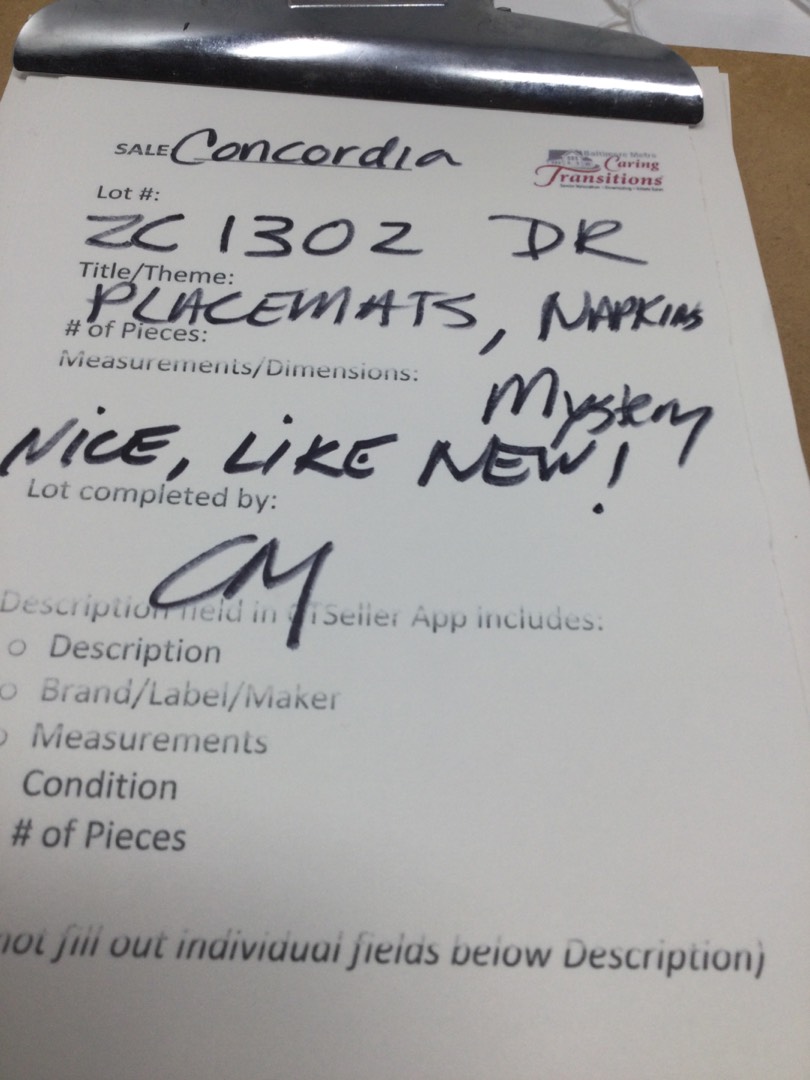 SALE Concordia
Baltimore Metro
Caring
Transitions
Lot #:
ZC 1302 DR
Title/Theme:
PLACEMATS, NAPKINS
# of Pieces:
Measurements/Dimensions:
Mystery
NICE, LIKE NEW!
Lot completed by:
CM
Description field in CTSeller App includes:
Description
Brand/Label/Maker
Measurements
Condition
# of Pieces
not fill out individual fields below Description)